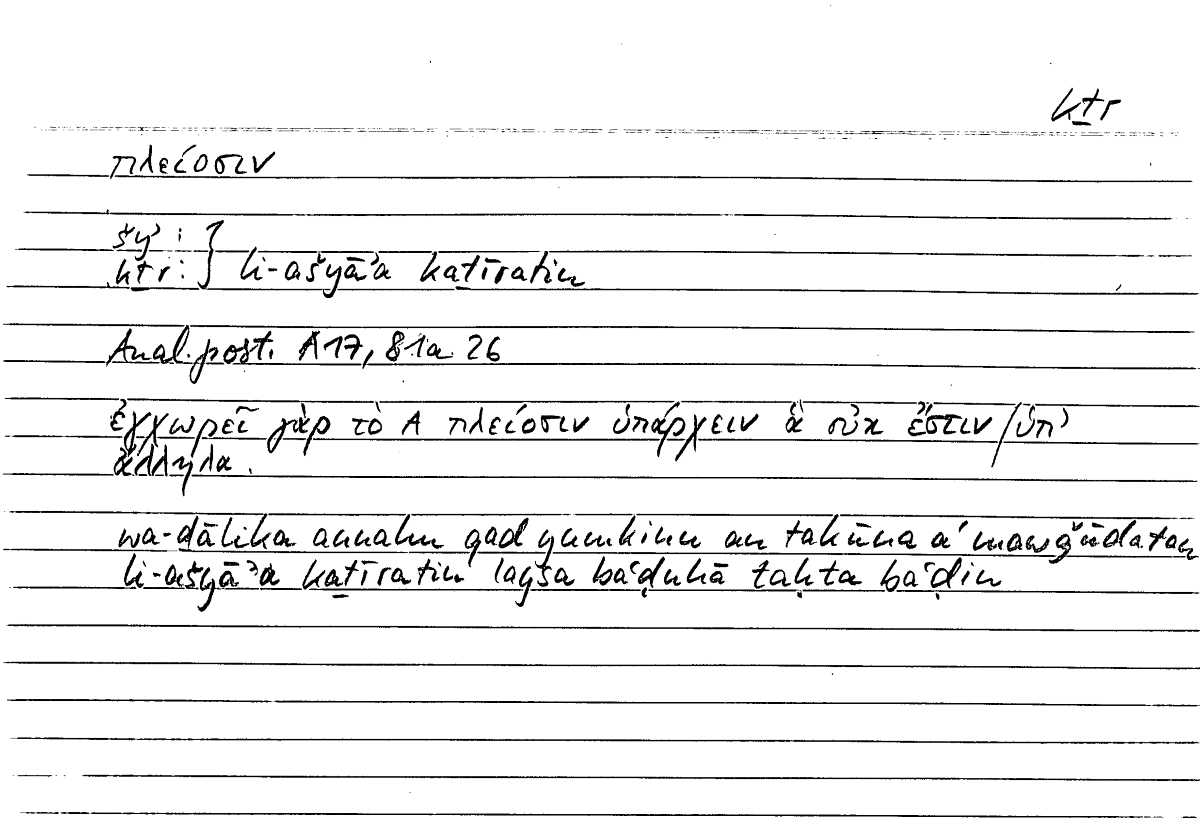 kṯr
πλείοσιν
šyʾ :
kṯr : } li-ašyāʾa kaṯīratin
Anal. post. A 17, 81a 26
ἐγχωρεῖ γὰρ τὸ A πλείοσιν ὑπάρχειν ἃ οὐκ ἔστιν / ὑπ’
ἄλληλα.
wa-ḏālika annahu qad yumkinu an takūna aʾ mawǧūdatan
li-ašyāʾa kaṯīratin laysa baʿḍuhā taḥta baʿḍin